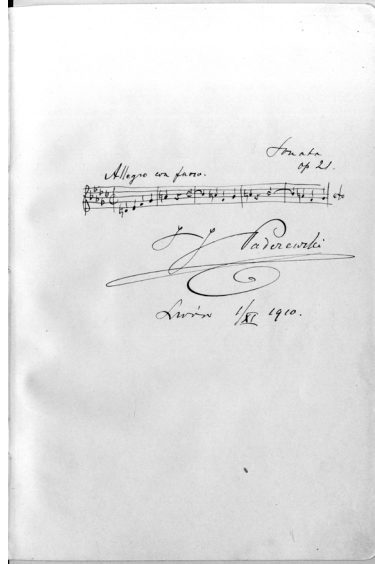 Sonata
op 21.
Allegro con fuoco.
I J Paderewski
Lwów 1/XI 1910.